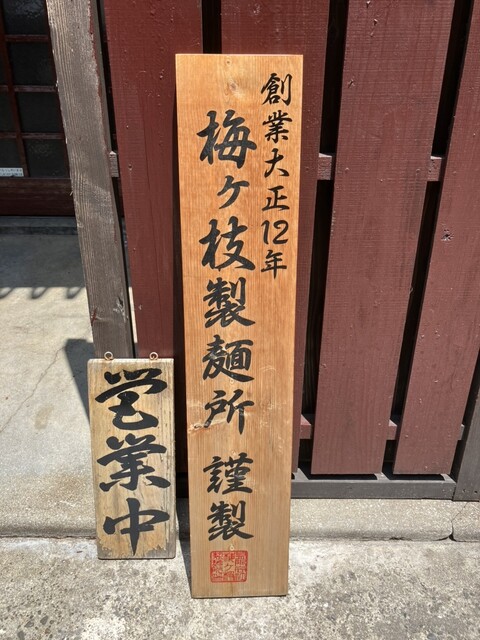 創業大正12年
梅ヶ枝製麺所 謹製
営業中